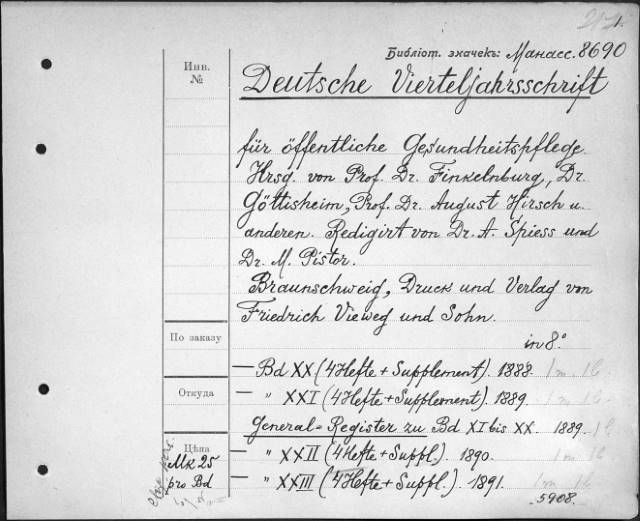 Библіот. значекъ: Манасс. 8690
Инв.
№
Deutsche Vierteljahrsschrift
für öffentliche Gesundheitspflege.
Hrsg. von Prof. Dr. Finkelnburg, Dr.
Göttisheim, Prof. Dr. August Hirsch u.
anderen. Redigirt von Dr. A. Spiess und
Dr. M. Pistor.
Braunschweig, Druck und Verlag von
Friedrich Vieweg und Sohn.
По заказу
in 8°
— Bd XX (4 Hefte + Supplement). 1888. 1 m. 1 b.
Откуда
— " XXI (4 Hefte + Supplement). 1889. 1 m. 1 b.
General-Register zu Bd XI bis XX. 1889. 1 b.
Цѣна
Mk 25
pro Bd
— " XXII (4 Hefte + Suppl.). 1890. 1 m. 1 b.
— " XXIII (4 Hefte + Suppl.). 1891. 1 m. 1 b.
5908.